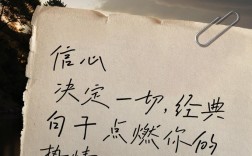 信心
决定一切,经典
句子点燃你的
热情